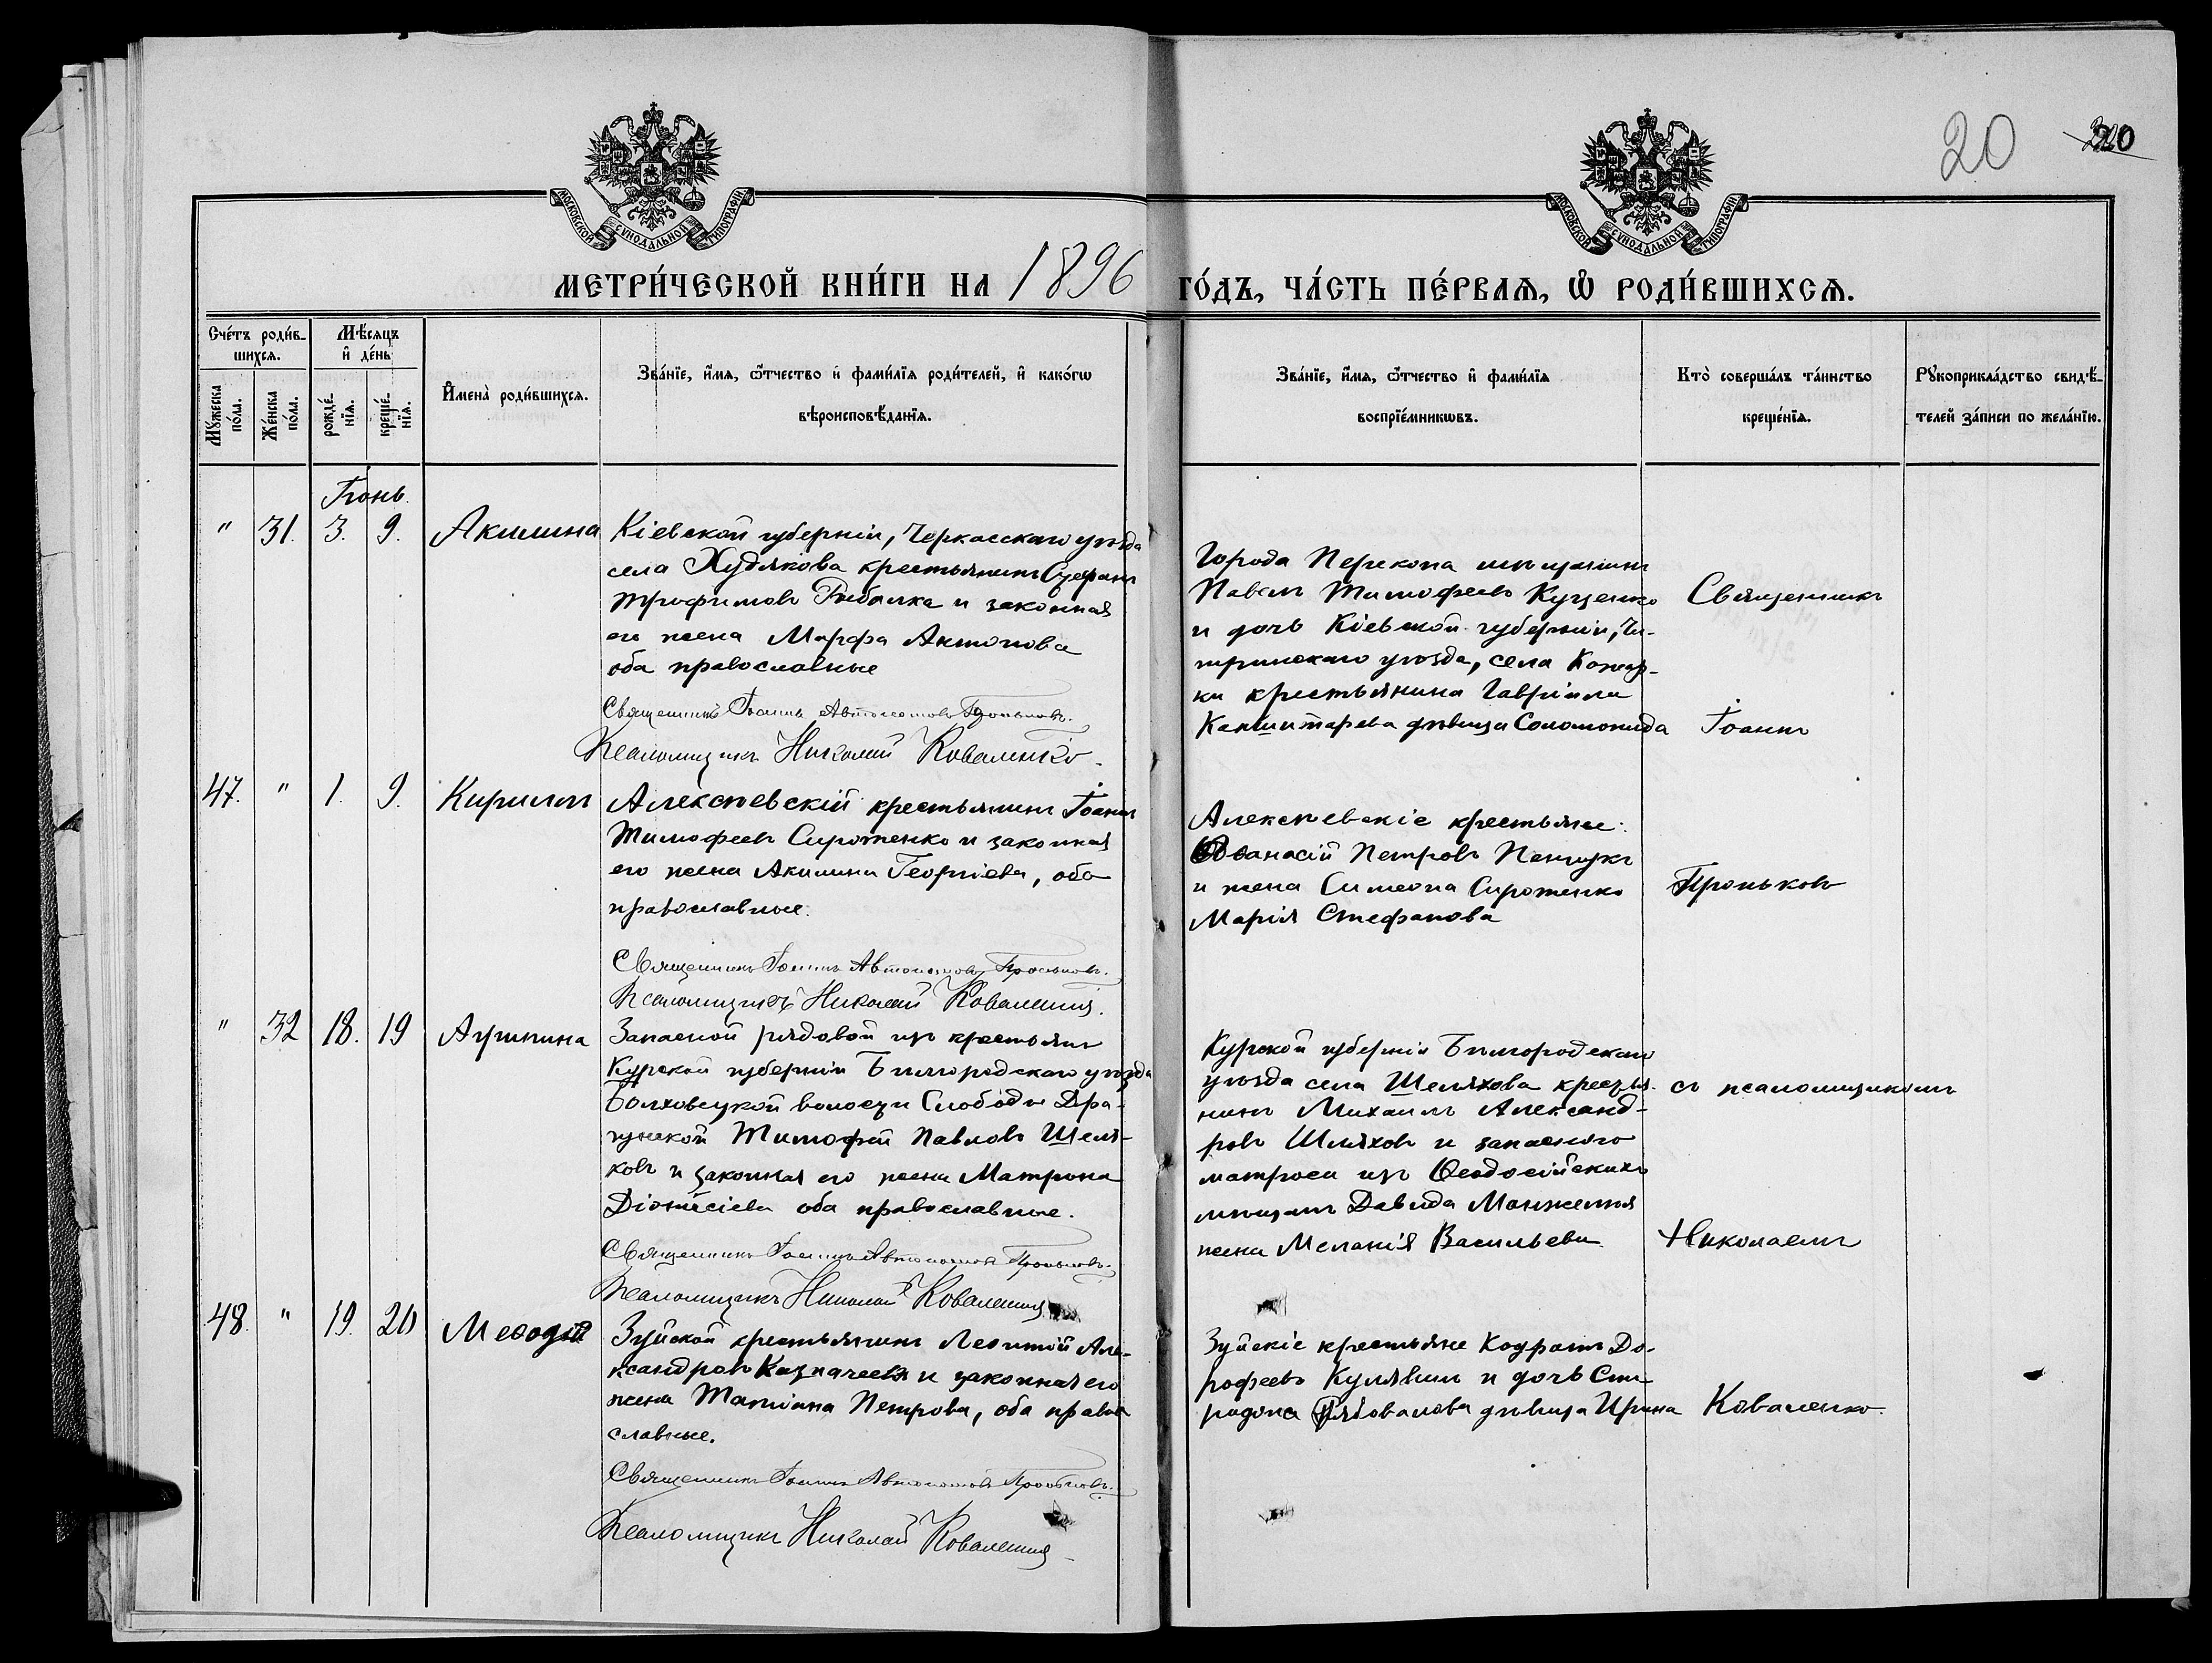 20
МОСКОВСКОЙ СѴНОДАЛЬНОЙ ТИПОГРАФІИ
МОСКОВСКОЙ СѴНОДАЛЬНОЙ ТИПОГРАФІИ
МЕТРИ́ЧЕСКОЙ КНИ́ГИ НА 1896 ГО́ДЪ, ЧА́СТЬ ПЕ́РВАѦ, Ѡ РОДИ́ВШИХСѦ.
Сче́тъ роди́в-
шихсѧ.
Мꙋжеска по́ла.
Же́нска по́ла.
Мѣ́сѧцъ
и҆ де́нь
рожде́-нїѧ.
креще́-нїѧ.
И҆мена̀ роди́вшихсѧ.
Зва́нїе, и҆́мѧ, ѻ҆́тчество и҆ фами́лїѧ роди́телей, и҆ како́гѡ
вѣроисповѣ́данїѧ.
Зва́нїе, и҆́мѧ, ѻ҆́тчество и҆ фами́лїѧ
воспрїе́мникѡвъ.
Кто̀ соверша́лъ та́инство
креще́нїѧ.
Рꙋкоприкла́дство свидѣ́-
телей за́писи по жела́нїю.
Іюнь.
" 31. 3. 9. Акилина
Кіевской губерніи, Черкасскаго уѣзда
села Худякова крестьянинъ Стефанъ
Трофимовъ Рыбалка и законная
его жена Марфа Антонова
оба православные
Священникъ Іоаннъ Автономовъ Проньковъ.
Псаломщикъ Николай Коваленко.
Города Перекопа мѣщанинъ
Павелъ Тимофеевъ Куценко
и дочь Кіевской губерніи, Чи-
гиринскаго уѣзда, села
ки крестьянина Гавріила
дѣвица Соломонида
Священникъ
Іоаннъ
47. " 1. 9. Кириллъ
Алексѣевскій крестьянинъ Іоаннъ
Тимофеевъ Сиротенко и законная
его жена Акилина Георгіева, оба
православные.
Священникъ Іоаннъ Автономовъ Проньковъ.
Псаломщикъ Николай Коваленко.
Алексѣевскіе крестьяне:
Аѳанасій Петровъ
и жена Симеона Сиротенко
Марія Стефанова
Проньковъ
" 32 18. 19 Агрипина
Запасной рядовой изъ крестьянъ
Курской губерніи Бѣлгородскаго уѣзда
Болховецкой волости Слободы Дра-
гунской Тимофей Павловъ Шеля-
ховъ и законная его жена Матрона
Діонисіева оба православные.
Священникъ Іоаннъ Автономовъ Проньковъ.
Псаломщикъ Николай Коваленко
Курской губерніи Бѣлгородскаго
уѣзда села Шеляхова крестья-
нинъ Михаилъ Александ-
ровъ Шеляховъ и запасного
матроса изъ Ѳеодосійскихъ
мѣщанъ Давида
жена Меланія Васильева
съ псаломщикомъ
Николаемъ
48. " 19. 20 Меѳодій
Зуйской крестьянинъ Леонтій Але-
ксандровъ Казначеевъ и законная его
жена Татіана Петрова, оба право
славные.
Священникъ Іоаннъ Автономовъ Проньковъ.
Псаломщикъ Николай Коваленко
Зуйскіе крестьяне Кодратъ До-
рофеевъ и дочь Спи-
ридона дѣвица Ирина
Коваленко.